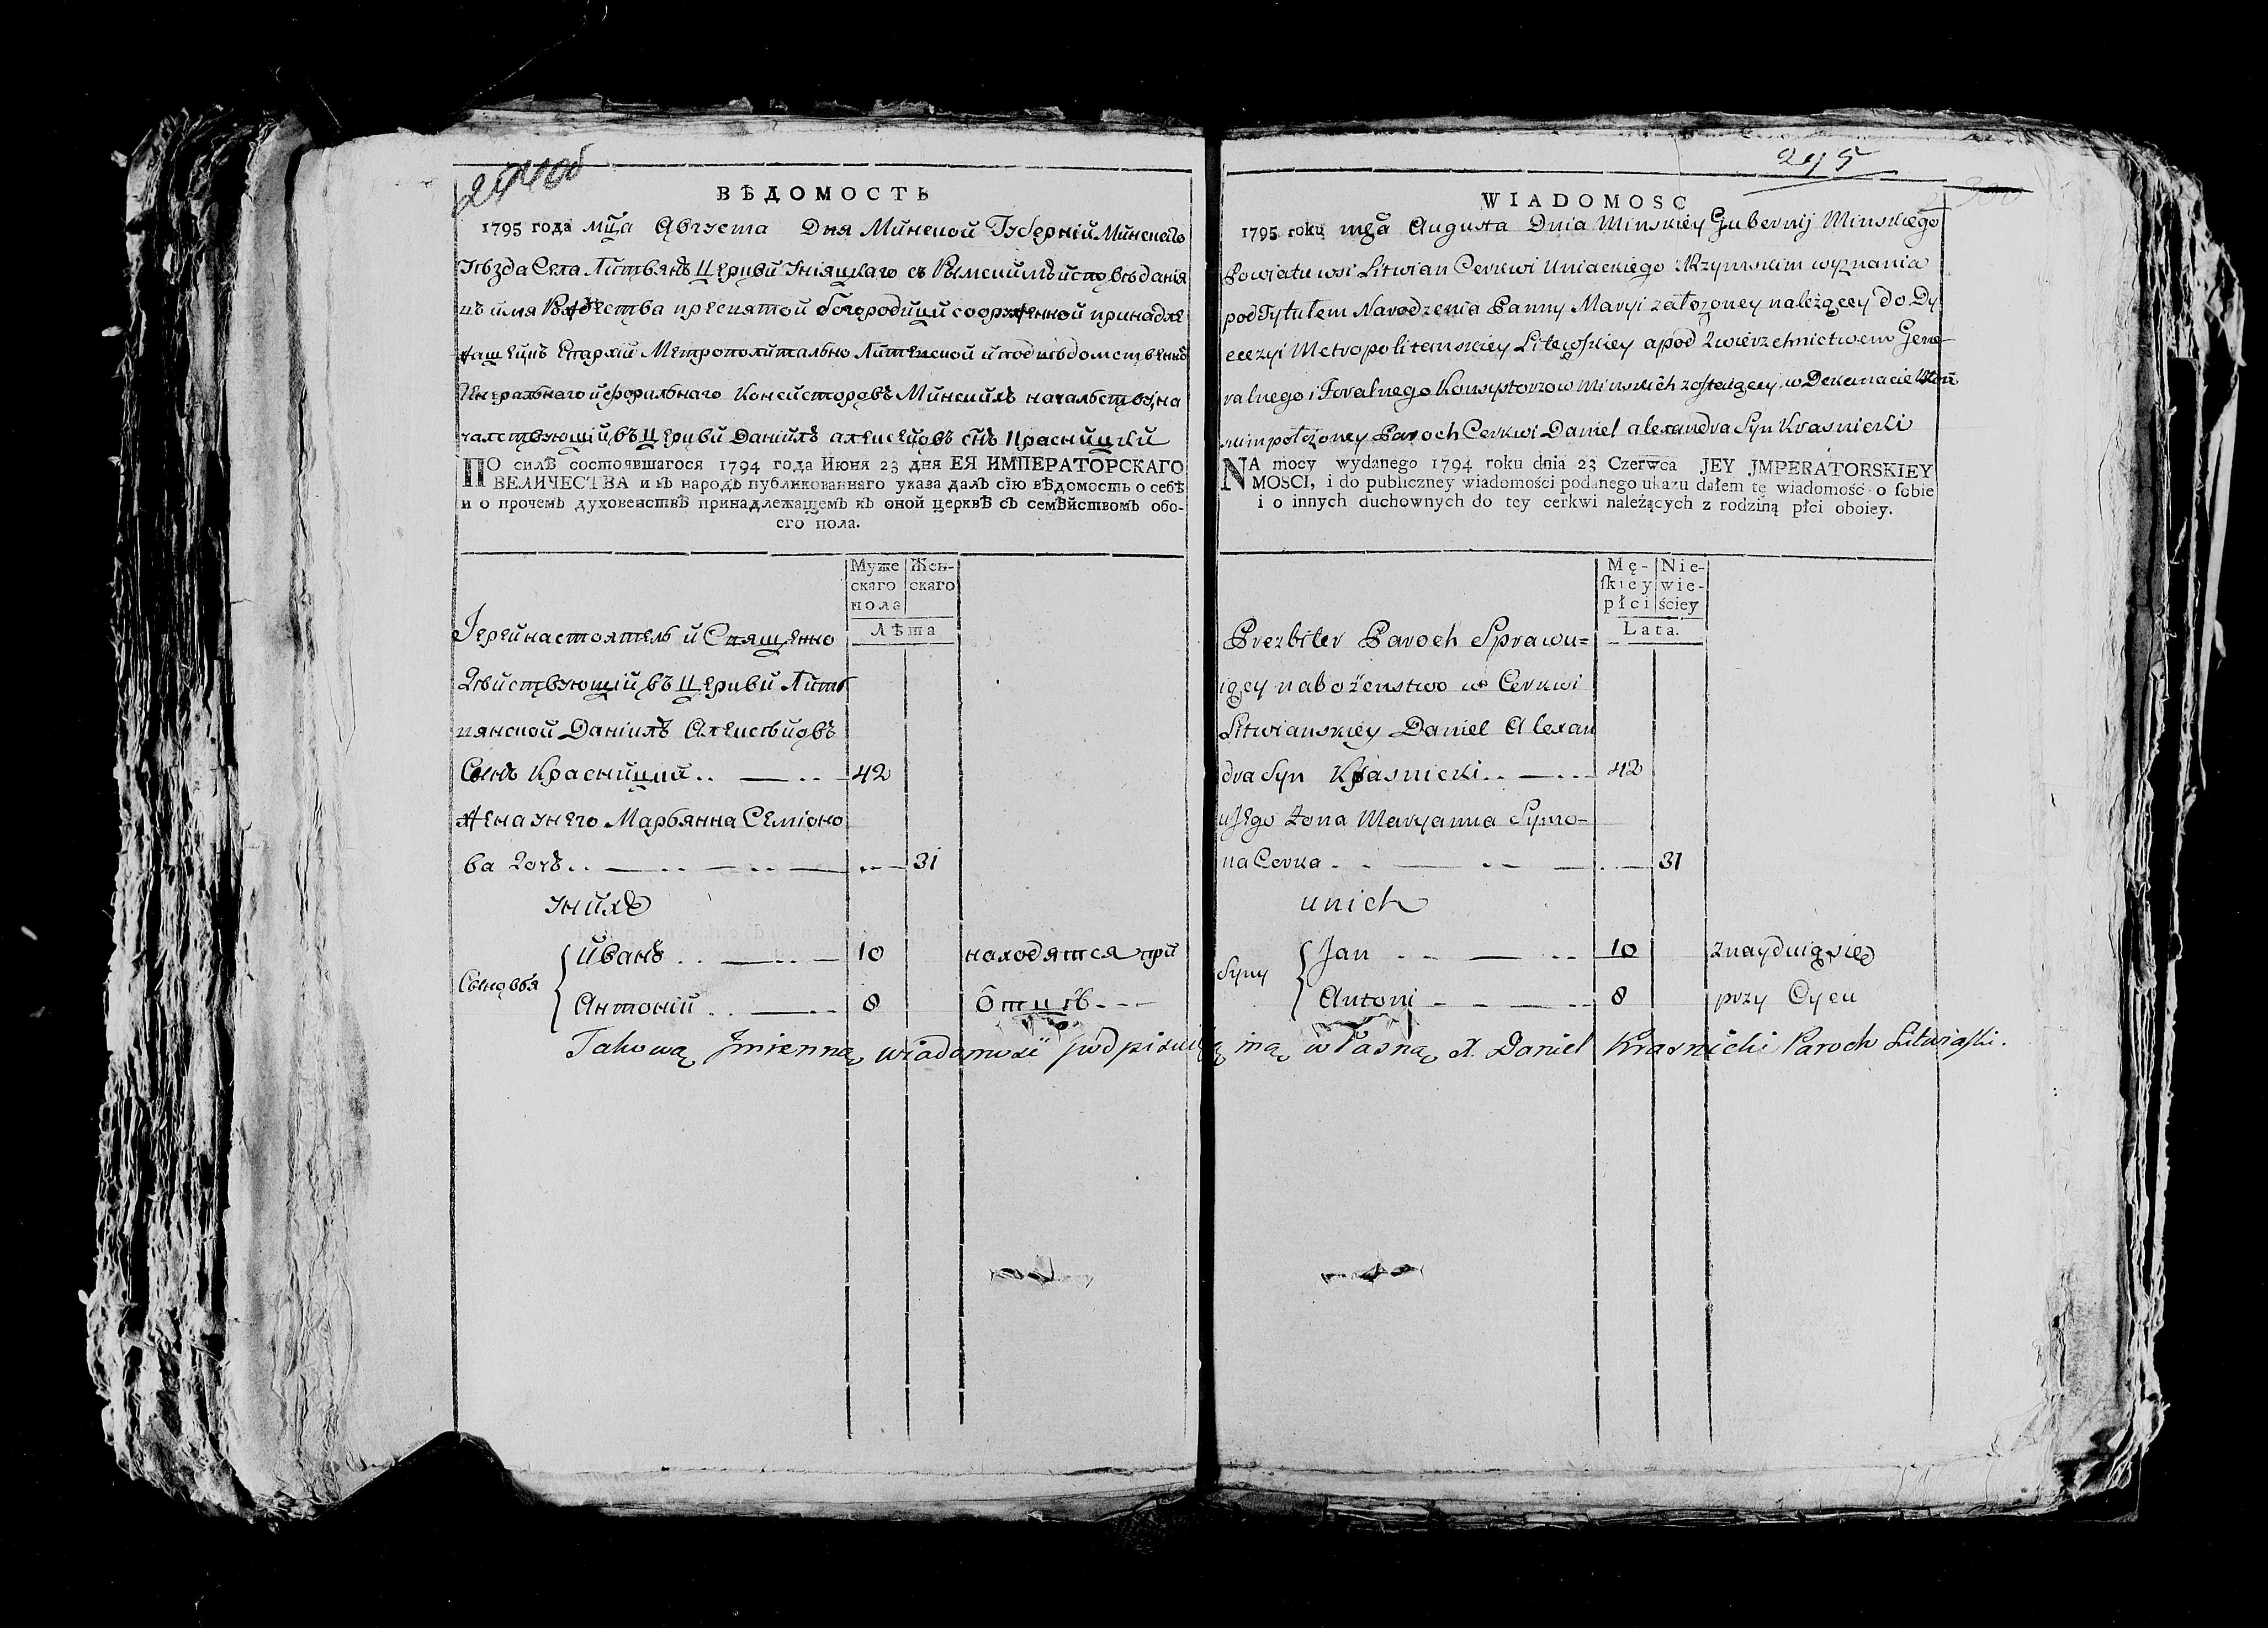 ВѢДОМОСТЬ
1795 года мц̃а Августа Дня Минской Губерній Минского
Уѣзда Села Литвянъ Церкви Уніяцкаго съ Рымскимъ исповѣданія
въ имя Рождества пресвятой богородици сооруженной принадле
жащеи въ Епархій Метрополитально Литевской и под вѣдомственнѣ
Генеральнаго и форильнаго Консисторовъ Минскихъ начальству, на
чалствующій въ Церкви Даніилъ алексеиовъ сн̃ъ Красницкій
ПО силѣ состоявшагося 1794 года Июня 23 дня ЕЯ ИМПЕРАТОРСКАГО
ВЕЛИЧЕСТВА и въ народъ публикованнаго указа далъ сїю вѣдомость о себѣ
и о прочемъ духовенствѣ принадлежащемъ къ оной церквѣ съ семѣйствомъ обо-
его пола.
Муже Жен-
скаго скаго
пола
Лѣта
Іерей настоятель и Священно
Дѣйствующій въ Церкви Литв
вянской Даніилъ Алексѣйовъ
Сынъ Красницкий .. — .. — 42
Жена у него Марьянна Семіоно
ва Дочъ .. — .. — .. — 31
у нихъ
Сыновья
Иванъ .. — .. — 10 находятся при
Антоній .. — .. 8 Отцѣ - - -
295
WIADOMOSC
1795 roku mc̃a Augusta Dnia Minskiey Gubernij Minskiego
Powiatu wsi Litwian Cerkwi Uniackiego z Rzymskim wyznania
pod Tytułem Narodzenia Panny Maryi założoney należącey do Dy
ecezyi Metropolitanskiey Litewskiey a pod Zwierzchnictwem Gene-
ralnego i Foralnego Konsystorzow Minskich zostaiącey, w Dekanacie
położoney Paroch Cerkwi Daniel alexandra Syn Krasnicki
NA mocy wydanego 1794 roku dnia 23 Czerwca JEY JMPERATORSKIEY
MOSCI, i do publiczney wiadomości podanego ukazu dałem tę wiadomość o sobie
i o innych duchownych do tey cerkwi należących z rodziną płci oboiey.
Mę- Nie-
skiey wie-
płci ściey
Lata.
Prezbiter Paroch Sprawu=
iący nabożenstwo w Cerkwi
Litwianskiey Daniel Alexan
dra Syn Krasnicki .. — .. 42
u Jego Żona Maryanna Symo-
na Corka - - — - - — 31
u nich
Syny
Jan - - — - - 10 znayduią się
Antoni - - — - - 8 przy Oycu
Takową Jmienną wiadomość podpisuię ręką własną X. Daniel Krasnicki Paroch Litwiański.